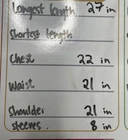 Longest length 27 in
Shortest length
Chest 22 in
Waist 21 in
Shoulder 21 in
Sleeves. 8 in